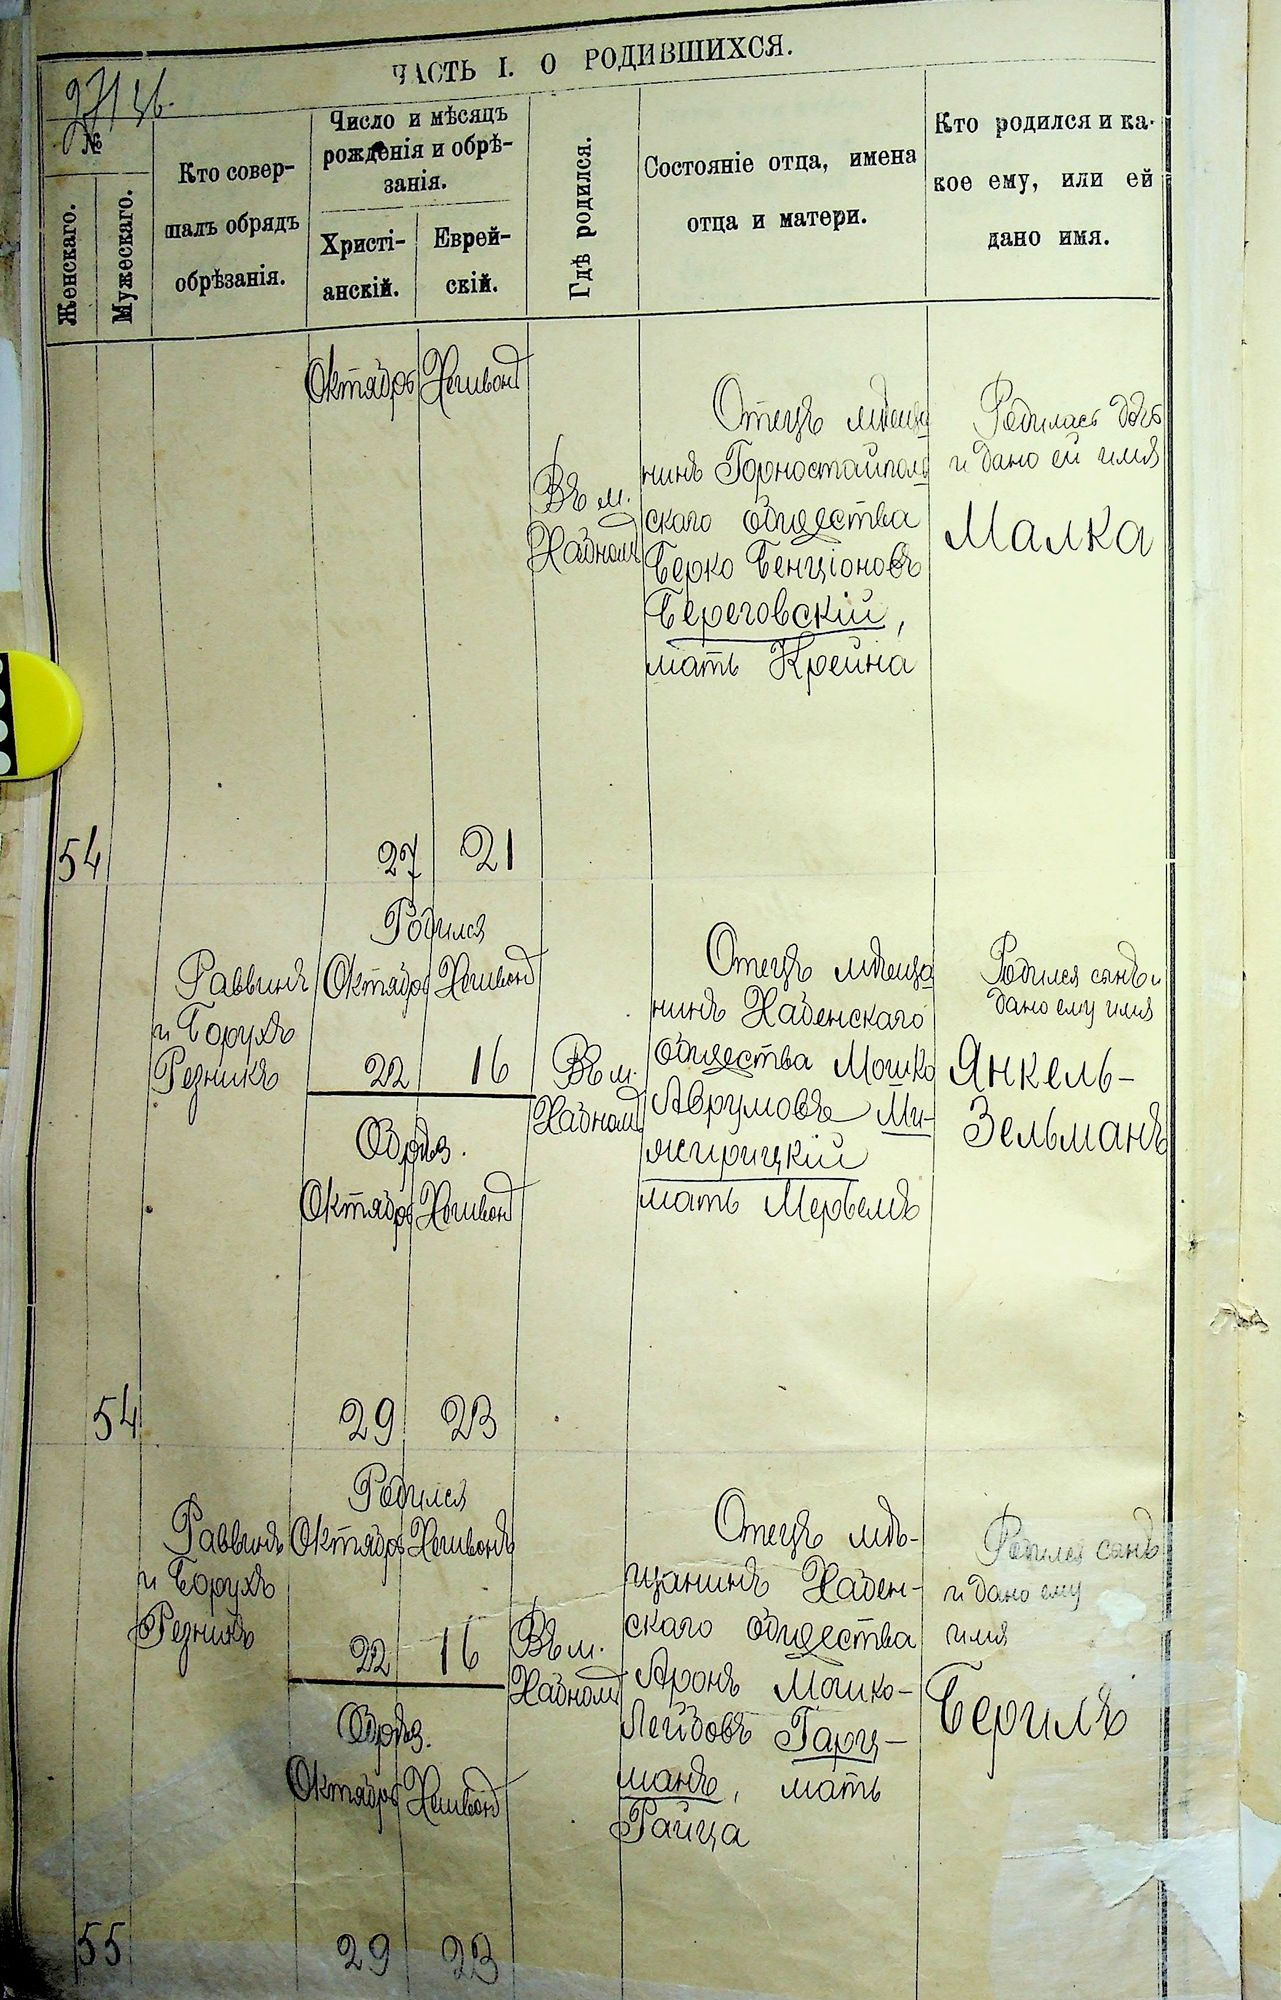 ЧАСТЬ I. О РОДИВШИХСЯ.
№
Женскаго.
Мужескаго.
Кто совер-
шалъ обрядъ
обрѣзанія.
Число и мѣсяцъ
рожденія и обрѣ-
занія.
Христі-
анскій.
Еврей-
скій.
Гдѣ родился.
Состояніе отца, имена
отца и матери.
Кто родился и ка-
кое ему, или ей
дано имя.
54
Октябрь
27
21
Въ м.
Хабномъ
Отецъ мѣща
нинъ Горностайполь
скаго общества
Берко Бенціоновъ
Береговскій,
мать Крейна
Родилась дочь
и дано ей имя
Малка
54
Раввинъ
и Борухъ
Резникъ
Родился
Октябрь Хешвонъ
22 16
Обрѣз.
Октябрь Хешвонъ
29 23
Въ м.
Хабномъ
Отецъ мѣща
нинъ Хабенскаго
общества Мошко
Аврумовъ Ми-
жирицкій
мать Мерьемъ
Родился сынъ и
дано ему имя
Янкель-
Зельманъ
55
Раввинъ
и Борухъ
Резникъ
Родился
Октябрь Хешвонъ
22 16
Обрѣз.
Октябрь Хешвонъ
29 23
Въ м.
Хабномъ
Отецъ мѣ-
щанинъ Хабен-
скаго общества
Аронъ Мошко-
Лейбовъ Гарц-
манъ, мать
Райца
Родился сынъ
и дано ему
имя
Бериль